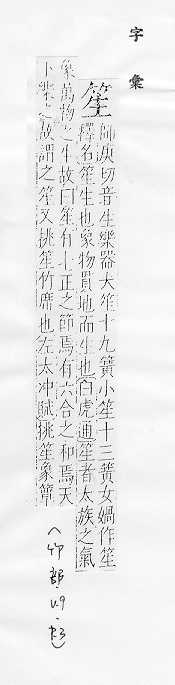 字彙
笙 師庚切音生樂器大笙十九簧小笙十三簧女媧作笙
釋名笙生也象物貫地而生也白虎通笙者太蔟之氣
象萬物之生故曰笙有七正之節焉有六合之和焉天
下樂之故謂之笙又挑笙竹席也左太冲賦挑笙象簟
(竹部·